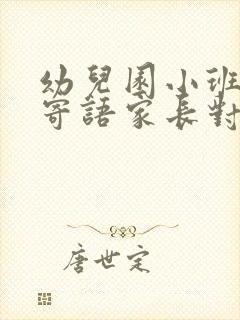 幼兒園小班
寄語家長對
唐世定